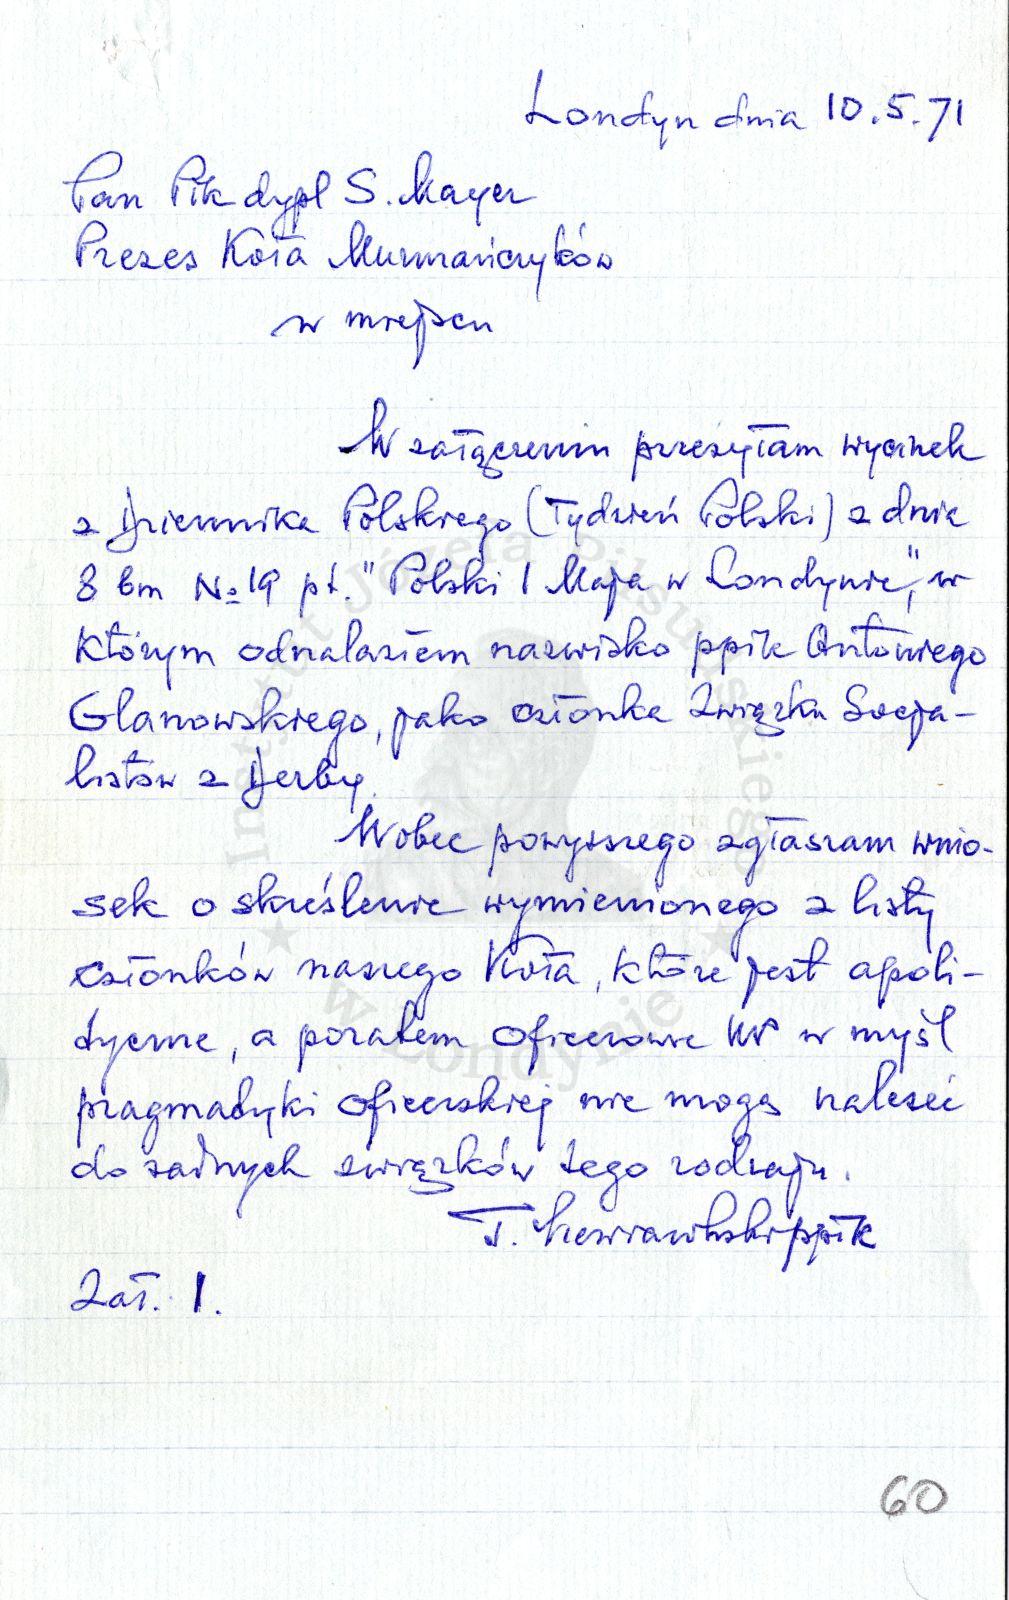 Londyn dnia 10.5.71
Pan Płk dypl S. Mayer
Prezes Koła Murmańczyków
w miejscu
W załączeniu przesyłam wycinek
z Dziennika Polskiego (Tydzień Polski) z dnia
8 bm No 19 pt. "Polski 1 Maja w Londynie", w
którym odnalazłem nazwisko ppłk Antoniego
Glanowskiego, jako członka Związku Socja-
listów z Derby.
Wobec powyższego zgłaszam wnio-
sek o skreślenie wymienionego z listy
członków naszego Koła, które jest apoli-
tyczne, a pozatem oficerowie WP w myśl
pragmatyki oficerskiej nie mogą należeć
do żadnych związków tego rodzaju.
T. ppłk
Zał. 1.
60
Instytut Józefa Piłsudskiego
w Londynie